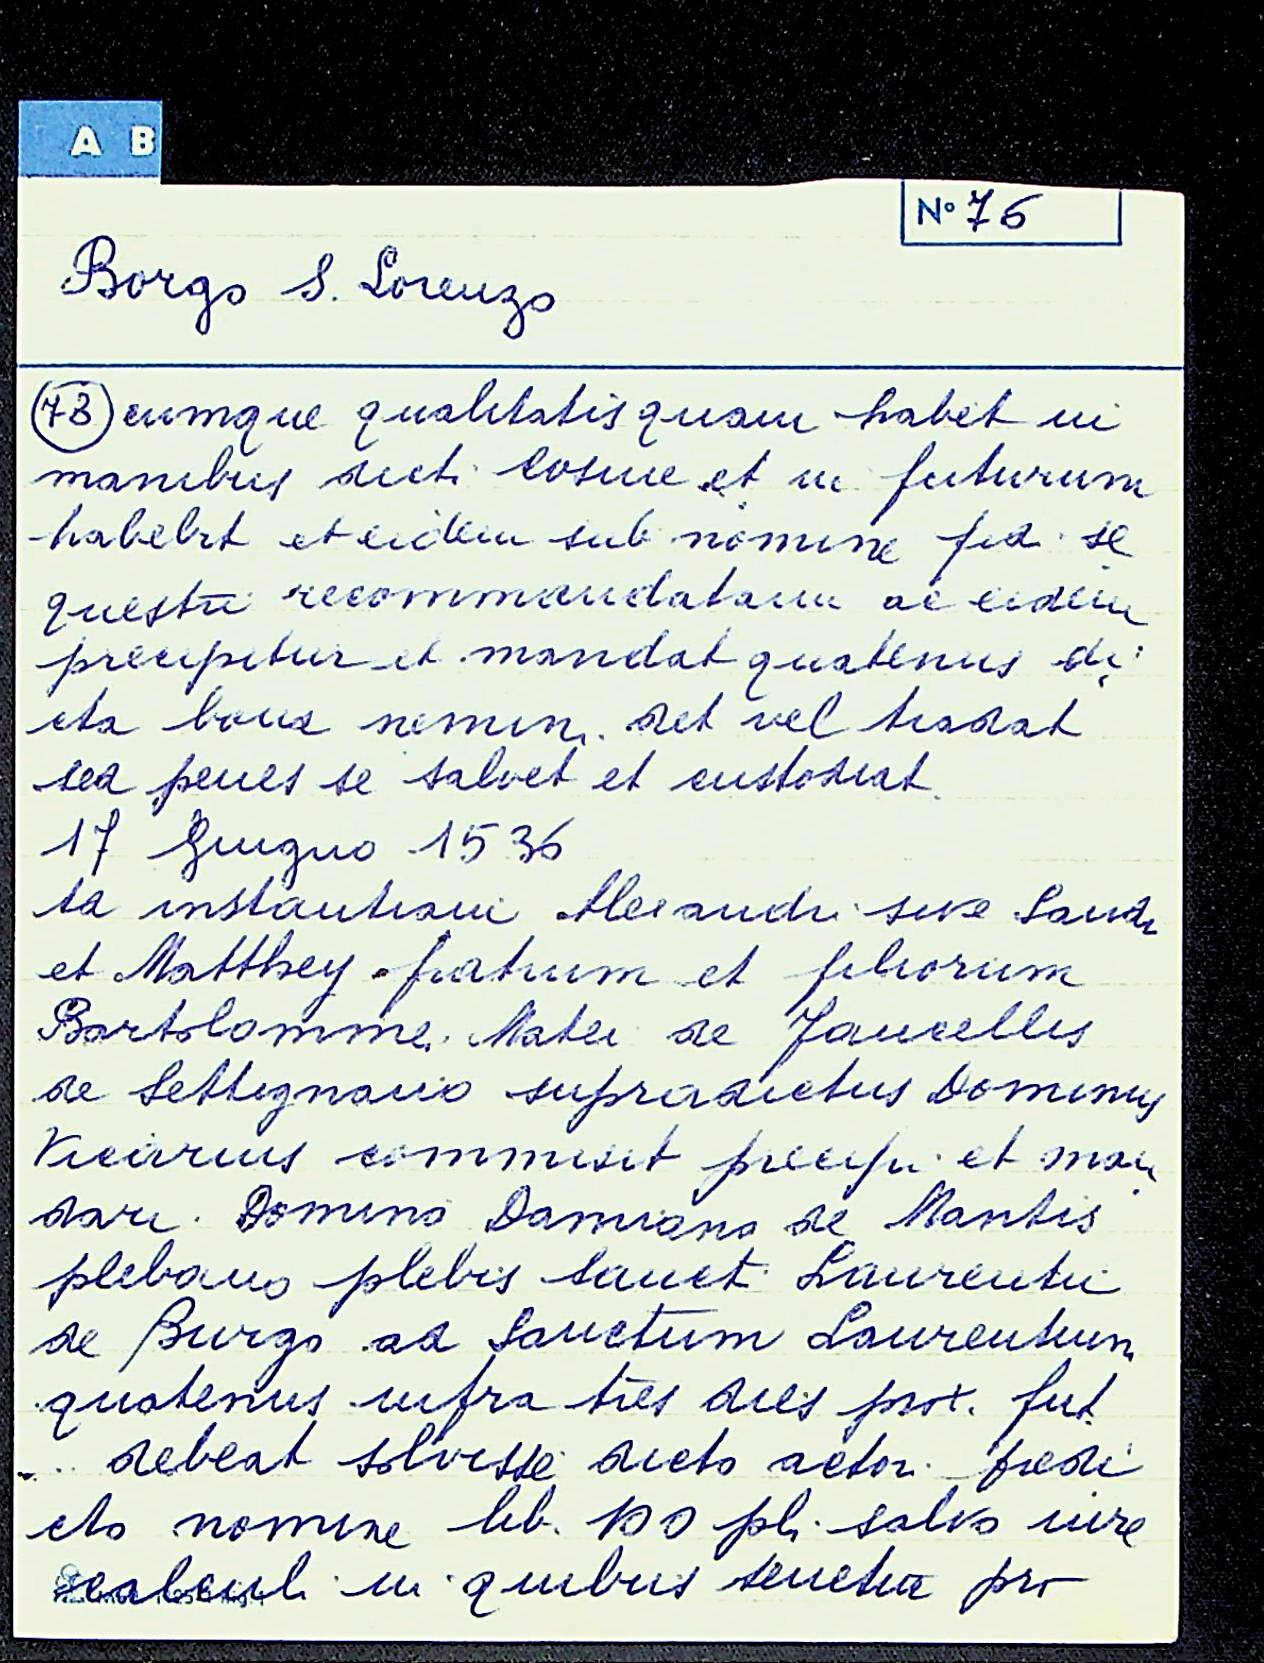 A B
N° 76
Borgo S. Lorenzo
(73) cumque qualitatis quam habet in
manibus dict. Cosme et in futurum
habebit et eidem sub nomine se
questri recommandatam ac eidem
precipitur et mandat quatenus di
cta bona nemin. det vel tradat
sed penes se salvet et custodiat.
17 Giugno 1536
ta instantiam Alexandri sive Sandr
et Matthey fratrum et filiorum
Bartolomme. Matei de Jancellis
de Settignano supradictus Dominus
Vicarius commisit precipi et man
dari. Domino Damiano de Mantis
plebano plebis Sanct. Laurentii
de Burgo ad Sanctum Laurentium
quatenus infra tres dies prox. fut.
debeat solvisse dicto actor. predi
cto nomine lib. 100 pl. salvo iure
calcul. in quibus tenetur pro